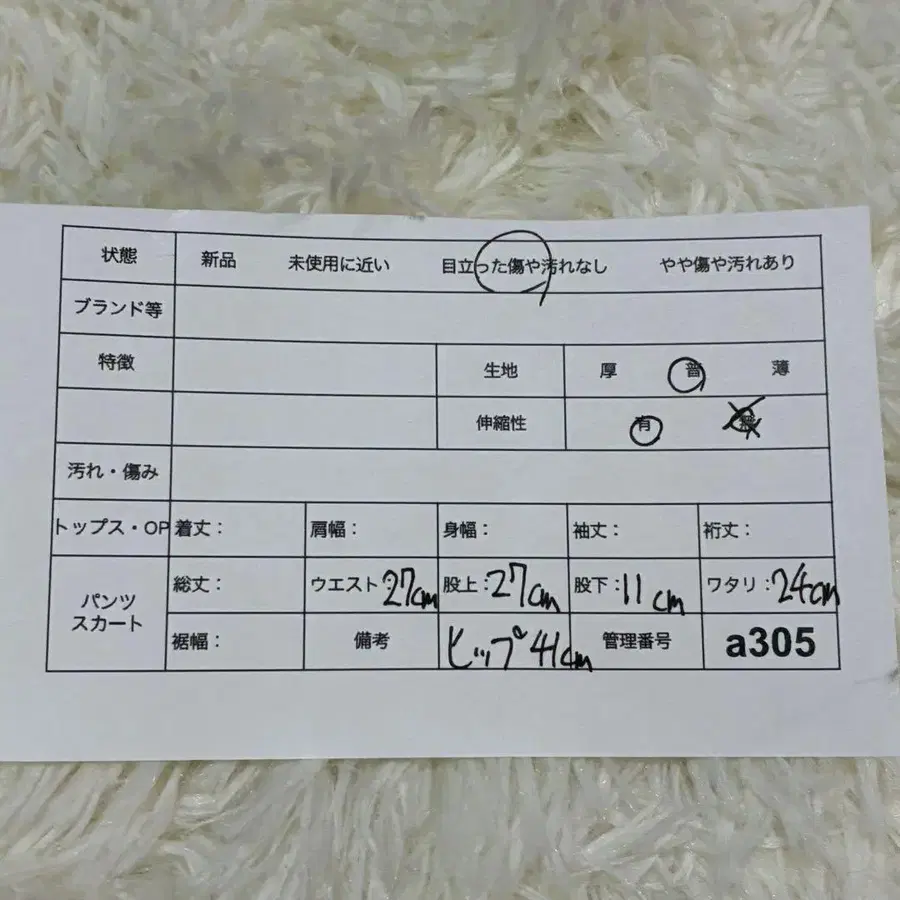 状態 新品 未使用に近い 目立った傷や汚れなし やや傷や汚れあり
ブランド等
特徴 生地 厚 普 薄
伸縮性 有 無
汚れ・傷み
トップス・OP 着丈： 肩幅： 身幅： 袖丈： 裄丈：
パンツ
スカート
総丈： ウエスト:27cm 股上:27cm 股下:11cm ワタリ:24cm
裾幅： 備考 ヒップ41cm 管理番号 a305